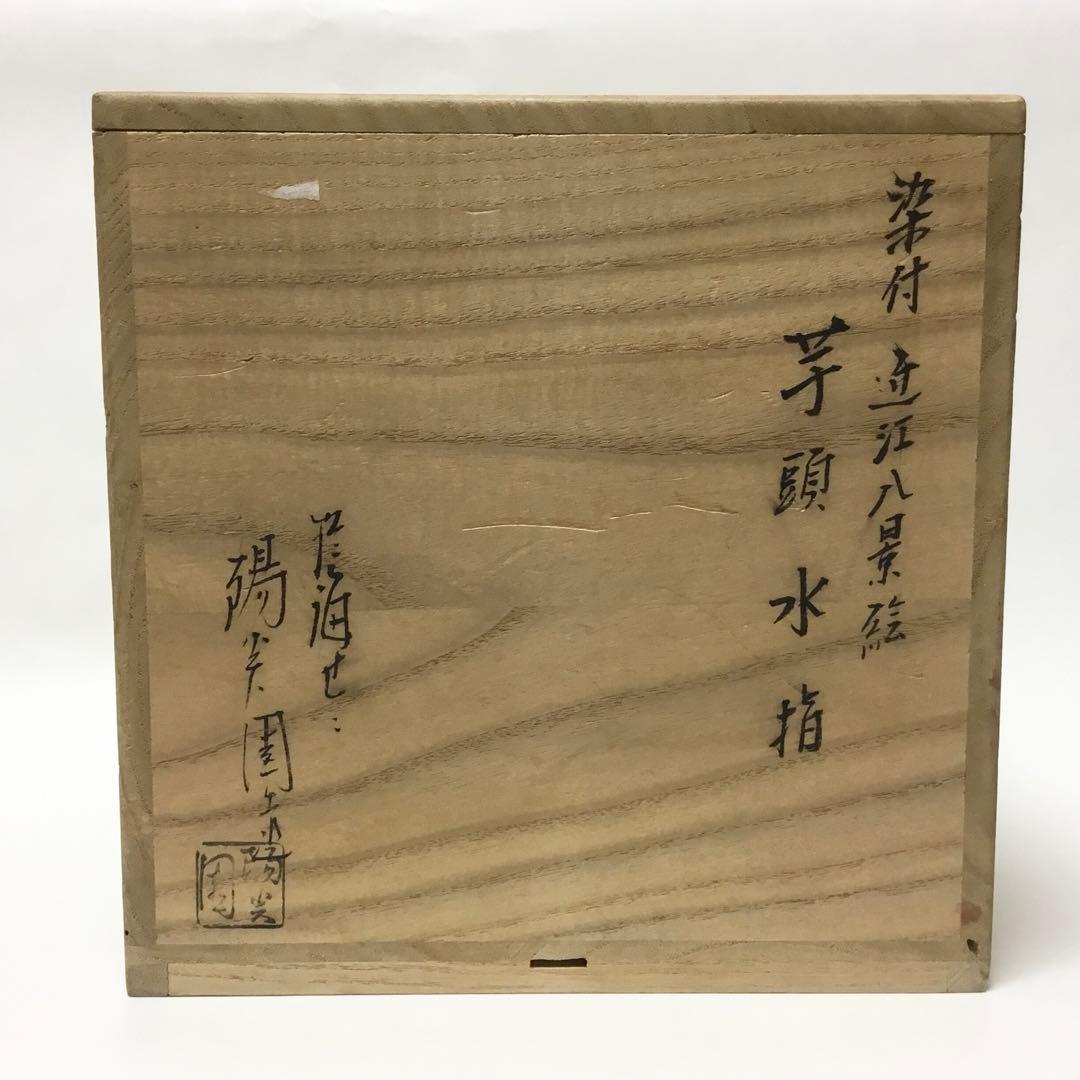 染付 近江八景絵
芋頭水指
陽炎園造
陽炎園